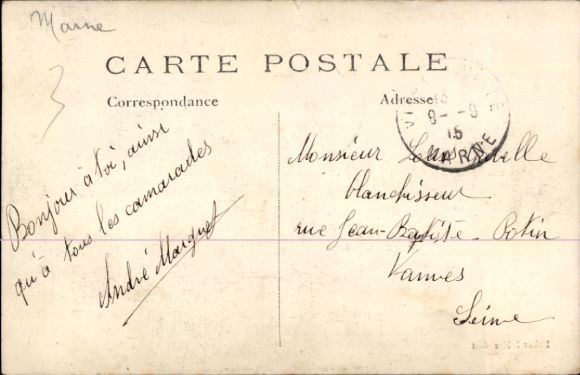 Marne
3
CARTE POSTALE
Correspondance
Adresse
9-9
15
MARNE
Bonjour à toi, ainsi
qu'à tous les camarades
André Maiguet
Monsieur Louis
blanchisseur
rue Jean-Baptiste Potin
Vanves
Seine